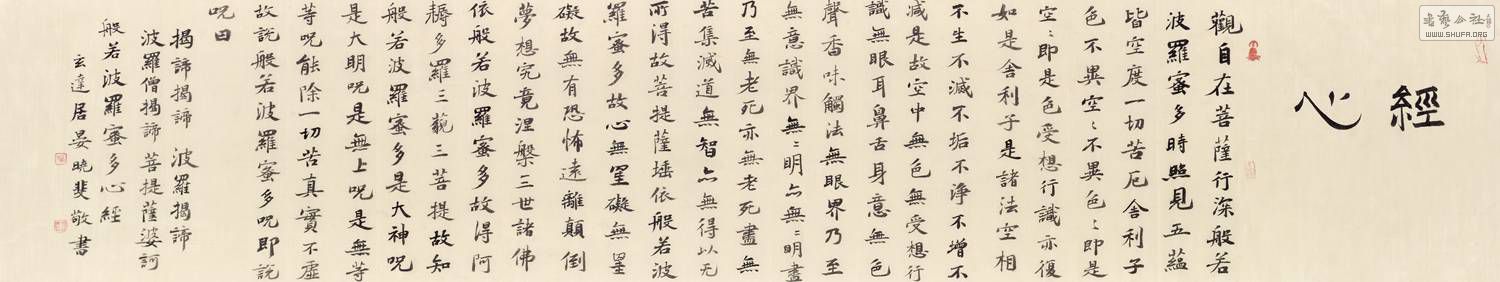 心經
觀自在菩薩行深般若
波羅蜜多時照見五蘊
皆空度一切苦厄舍利子
色不異空〻不異色〻即是
空〻即是色受想行識亦復
如是舍利子是諸法空相
不生不滅不垢不淨不增不
減是故空中無色無受想行
識無眼耳鼻舌身意無色
聲香味觸法無眼界乃至
無意識界無〻明亦無〻明盡
乃至無老死亦無老死盡無
苦集滅道無智亦無得以无
所得故菩提薩埵依般若波
羅蜜多故心無罣礙無罣
礙故無有恐怖遠離顛倒
夢想究竟涅槃三世諸佛
依般若波羅蜜多故得阿
耨多羅三藐三菩提故知
般若波羅蜜多是大神呪
是大明呪是無上呪是無等
等呪能除一切苦真實不虛
故說般若波羅蜜多呪即說
呪曰
揭諦揭諦 波羅揭諦
波羅僧揭諦菩提薩婆訶
般若波羅蜜多心經
玄達居晏曉斐敬書
WWW.SHUFA.ORG